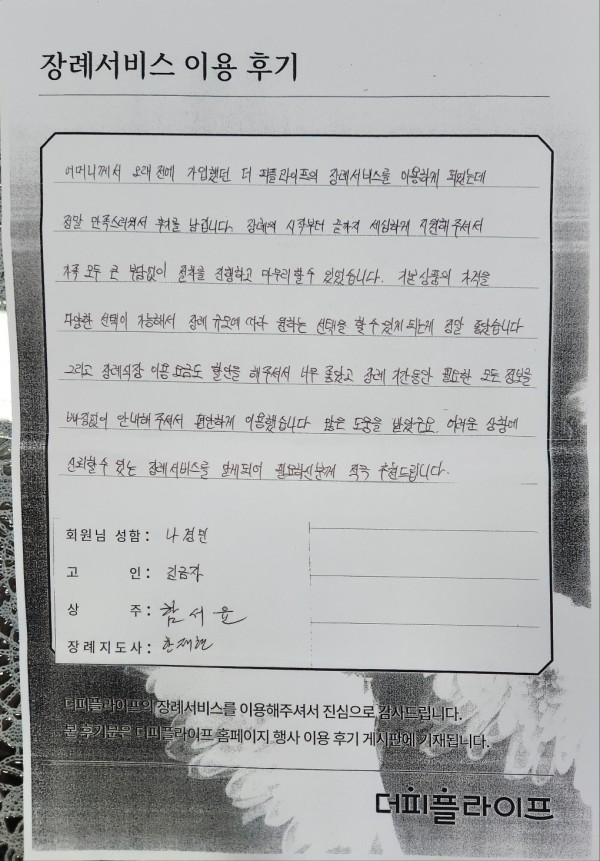 장례서비스 이용 후기
어머니께서 오래 전에 가입했던 더 피플라이프의 장례서비스를 이용하게 되었는데
정말 만족스러워서 후기를 남깁니다. 장례의 시작부터 끝까지 세심하게 지원해주셔서
가족 모두 큰 부담없이 절차를 진행하고 마무리할 수 있었습니다. 기본상품의 가격을
다양한 선택이 가능해서 장례 규모에 따라 원하는 선택을 할 수 있게 되는게 정말 좋았습니다
그리고 장례식장 이용요금도 할인을 해주셔서 너무 좋았고 장례 기간동안 필요한 모든 정보를
빠짐없이 안내해 주셔서 편안하게 이용했습니다 많은 도움을 받았구요. 어려운 상황에
신뢰할 수 있는 장례서비스를 알게되어 필요하신분께 적극 추천드립니다.
회원님 성함: 나경민
고 인: 김금자
상 주: 함서윤
장례지도사: 한재현
더피플라이프의 장례서비스를 이용해주셔서 진심으로 감사드립니다.
본 후기문은 더피플라이프 홈페이지 행사 이용 후기 게시판에 기재됩니다.
더피플라이프